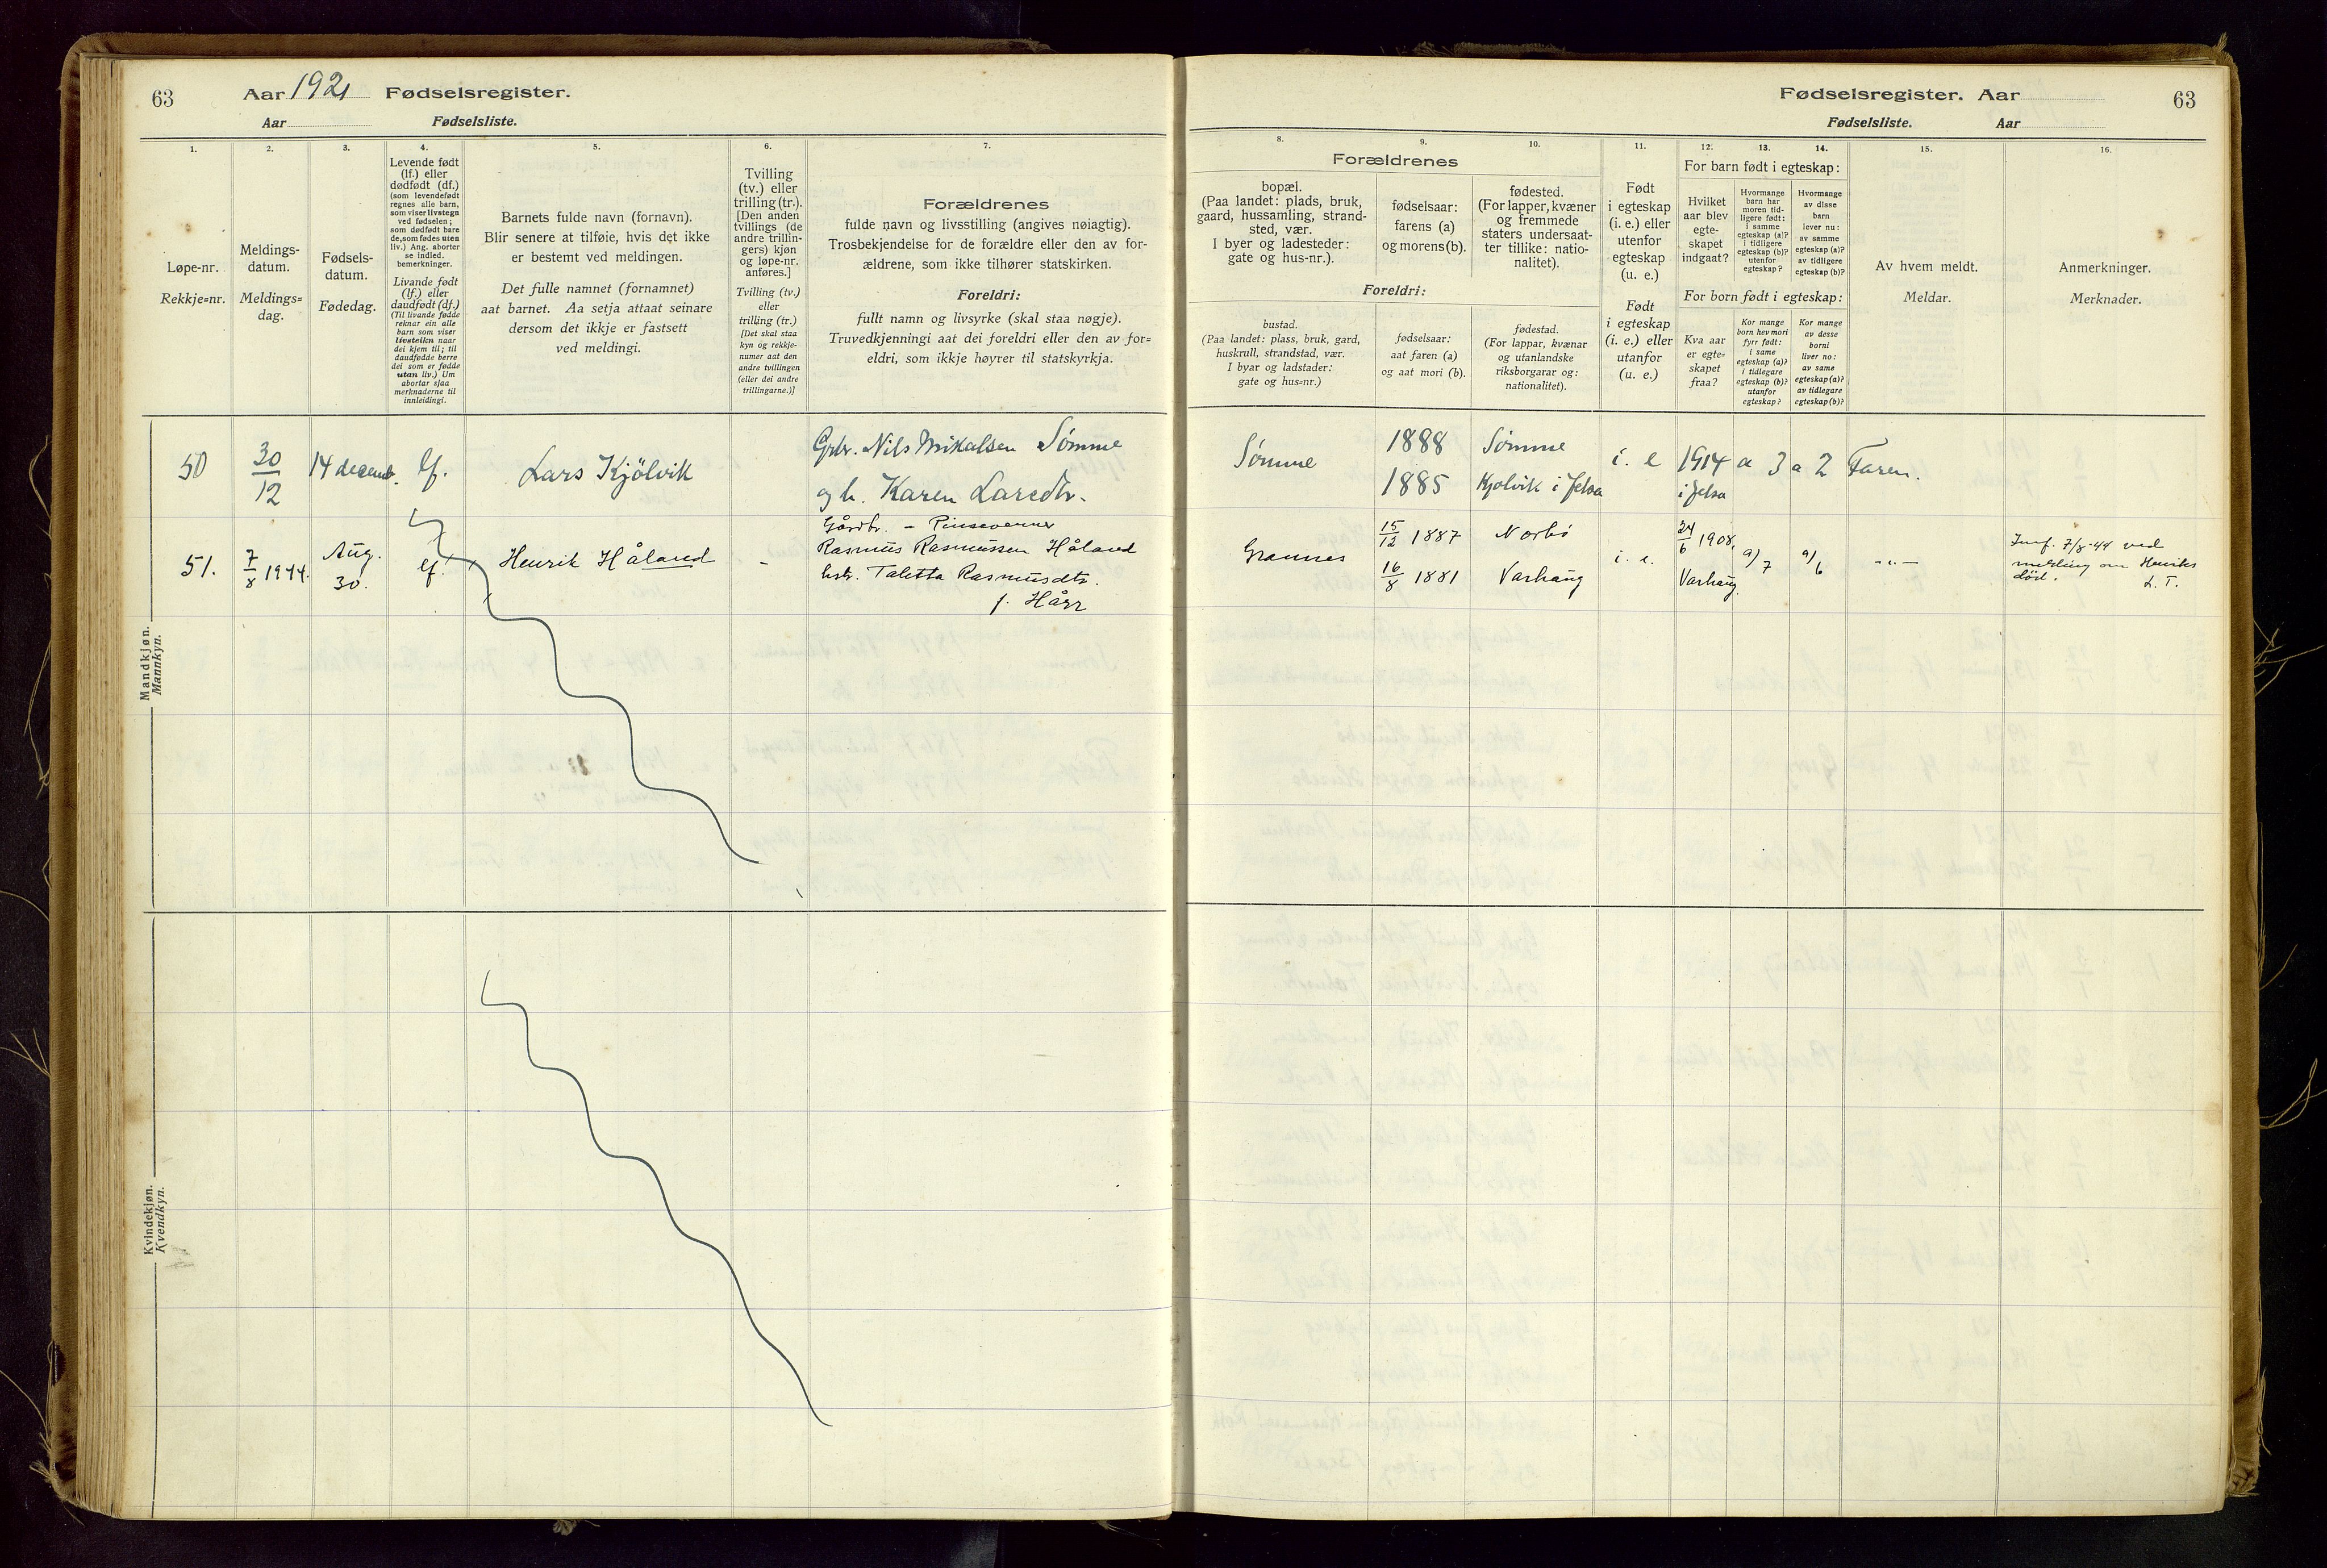 63
Aar 1921 Fødselsregister.
Aar Fødselsliste.
Fødselsregister. Aar
63
Fødselsliste. Aar
1.
Løpe-nr.
Rekkje=nr.
2.
Meldings-
datum.
Meldings=
dag.
3.
Fødsels-
datum.
Fødedag.
4.
Levende født
(lf.) eller
dødfødt (df.)
(som levendefødt
regnes alle barn,
som viser livstegn
ved fødselen;
som dødfødt bare
de, som fødes uten
liv.) Ang. aborter
se indled.
bemerkninger.
Livande født
(lf.) eller
daudfødt (df.)
(Til livande fødde
reknar ein alle
barn som viser
livsteikn naar
dei kjem til; til
daudfødde berre
dei som er fødde
utan liv.) Um
abortar sjaa
merknaderne til
innleidingi.
5.
Barnets fulde navn (fornavn).
Blir senere at tilføie, hvis det ikke
er bestemt ved meldingen.
Det fulle namnet (fornamnet)
aat barnet. Aa setja attaat seinare
dersom det ikkje er fastsett
ved meldingi.
6.
Tvilling
(tv.) eller
trilling (tr.).
[Den anden
tvillings (de
andre trillin-
gers) kjøn
og løpe-nr.
anføres.]
Tvilling (tv.)
eller
trilling (tr.)
[Det skal staa
kyn og rekkje-
numer aat den
andre tvillingen
(eller dei andre
trillingarne.)]
7.
Forældrenes
fulde navn og livsstilling (angives nøiagtig).
Trosbekjendelse for de forældre eller den av for-
ældrene, som ikke tilhører statskirken.
Foreldri:
fullt namn og livsyrke (skal staa nøgje).
Truvedkjenningi aat dei foreldri eller den av for=
eldri, som ikkje høyrer til statskyrkja.
Forældrenes
8.
bopæl.
(Paa landet: plads, bruk,
gaard, hussamling, strand-
sted, vær.
I byer og ladesteder:
gate og hus-nr.).
9.
fødselsaar:
farens (a)
og morens (b).
10.
fødested.
(For lapper, kvæner
og fremmede
staters undersaat-
ter tillike: natio-
nalitet).
Foreldri:
bustad.
(Paa landet: plass, bruk, gard,
huskrull, strandstad, vær.
I byar og ladstader:
gate og hus=nr.)
fødselsaar:
aat faren (a)
og aat mori (b).
fødestad.
(For lappar, kvænar
og utanlandske
riksborgarar og:
nationalitet).
11.
Født
i egteskap
(i. e.) eller
utenfor
egteskap
(u. e.)
Født
i egteskap
(i. e.) eller
utanfor
(u. e.)
12. 13. 14.
For barn født i egteskap:
Hvilket
aar blev
egte-
skapet
indgaat?
Hvormange
barn har
moren tid-
ligere født:
i samme
egteskap (a)?
i tidligere
egteskap (b)?
utenfor
egteskap?
Hvormange
av disse
barn
lever nu:
av samme
egteskap (a)?
av tidligere
egteskap (b)?
For born født i egteskap:
Kva aar
er egte=
skapet
fraa?
Kor mange
born hev mori
fyrr født:
i same
egteskap (a)?
i tidlegare
egteskap (b)?
utanfor
egteskap?
Kor mange
av desse
borni
liver no:
av same
egteskap (a)?
av tidlegare
egteskap (b)?
15.
Av hvem meldt.
Meldar.
16.
Anmerkninger.
Merknader.
Mandkjøn.
Mannkyn.
50 30/12 14 decemb. lf. Lars Kjölvik
Grbr. Nils Mikalsen Sömme
og h. Karen Larsdtr.
Sömme 1888 Sömme
1885 Kjølvik i Jelsa
i. e 1914 i Jelsa a 3 a 2 Faren.
51. 7/8 1944. Aug. 30. lf. Henrik Håland -
Gårdbr. - Pinsevenner
Rasmus Rasmussen Håland
hstr. Taletta Rasmusdtr.
f. Hårr
Grannes 15/12 1887 Norbö
16/8 1881 Varhaug
i. e. 24/6 1908, Varhaug. a/7 a/6 -"-
Innf. 7/8-44 ved
melding om Henriks
död. L. T.
Kvindekjøn.
Kvendkyn.